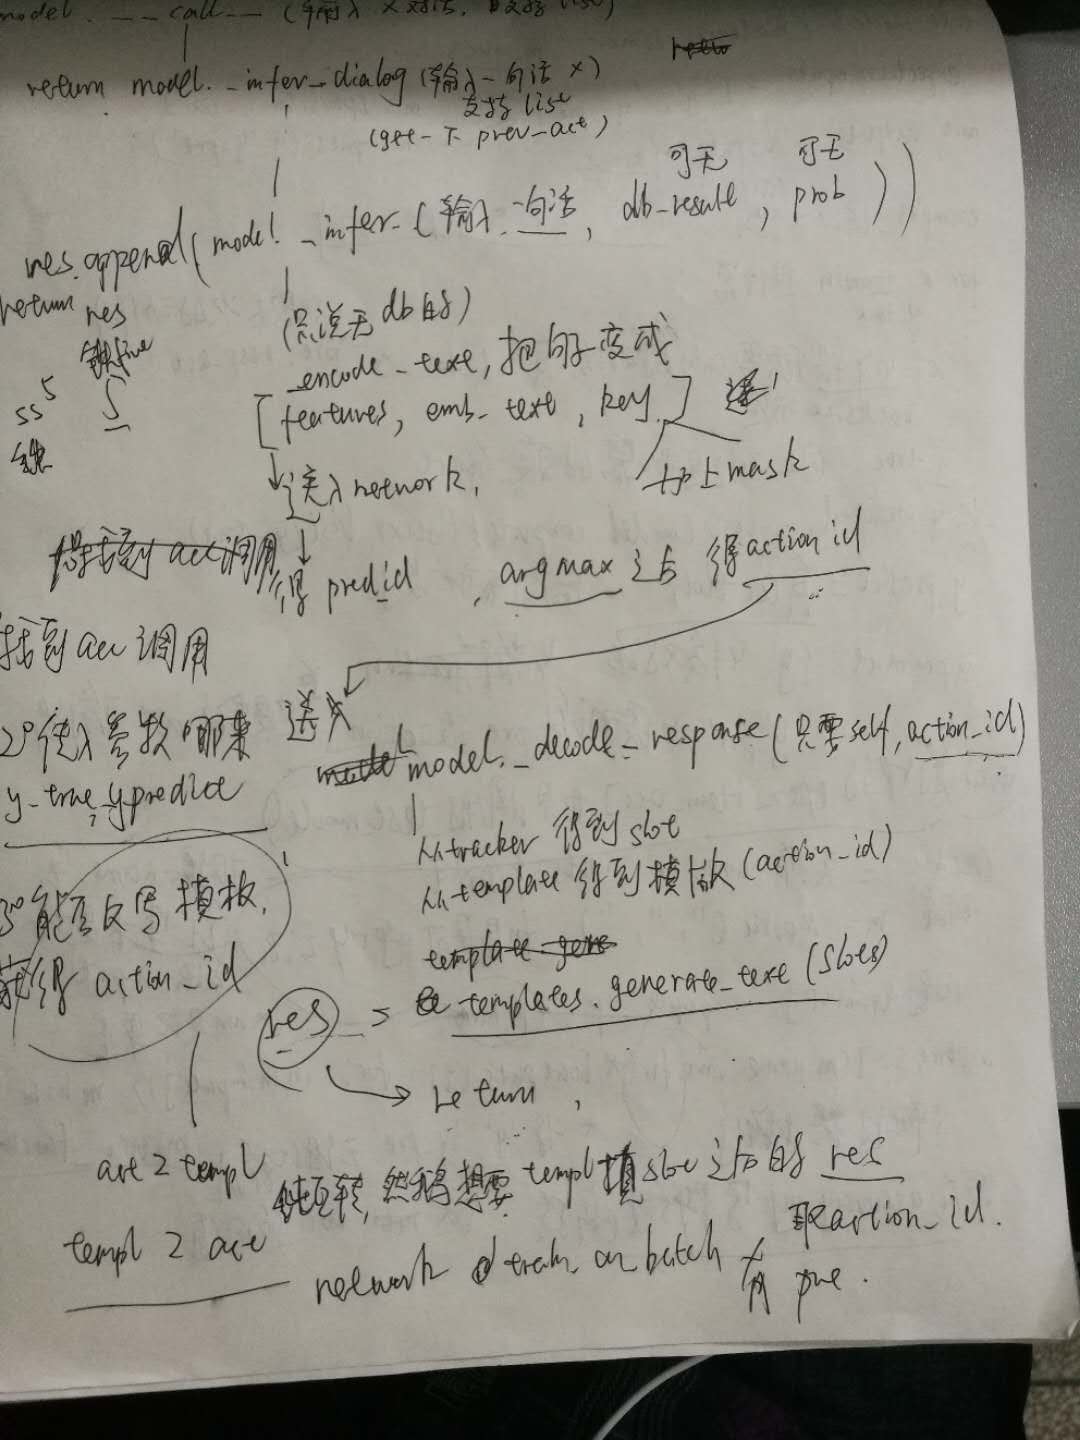 model.__call__ (输入 x 对话, 支持 list)
return model._infer_dialog (输入一句话 x)
支持 list
(get一下 prev_act)
可无 可无
res.append(model._infer_(输入一句话, db_result, prob))
return res
(只说无db的)
_encode_text, 把句子变成
[features, emb_text, key]
ss 5
加上mask
送入network,
得 pred_id, argmax 之后 得action id
找到acc调用
2° 传入参数哪来
y_true, y_predict
送入
model._decode_response(只要self, action_id)
从tracker 得到slot
从template 得到模版(action_id)
3° 能否反写模板,
获得 action_id
res = templates.generate_text(slots)
return,
act 2 templ
templ 2 act
能互转, 然鹅想要 templ填slot之后的 res
取action_id.
network train_on_batch